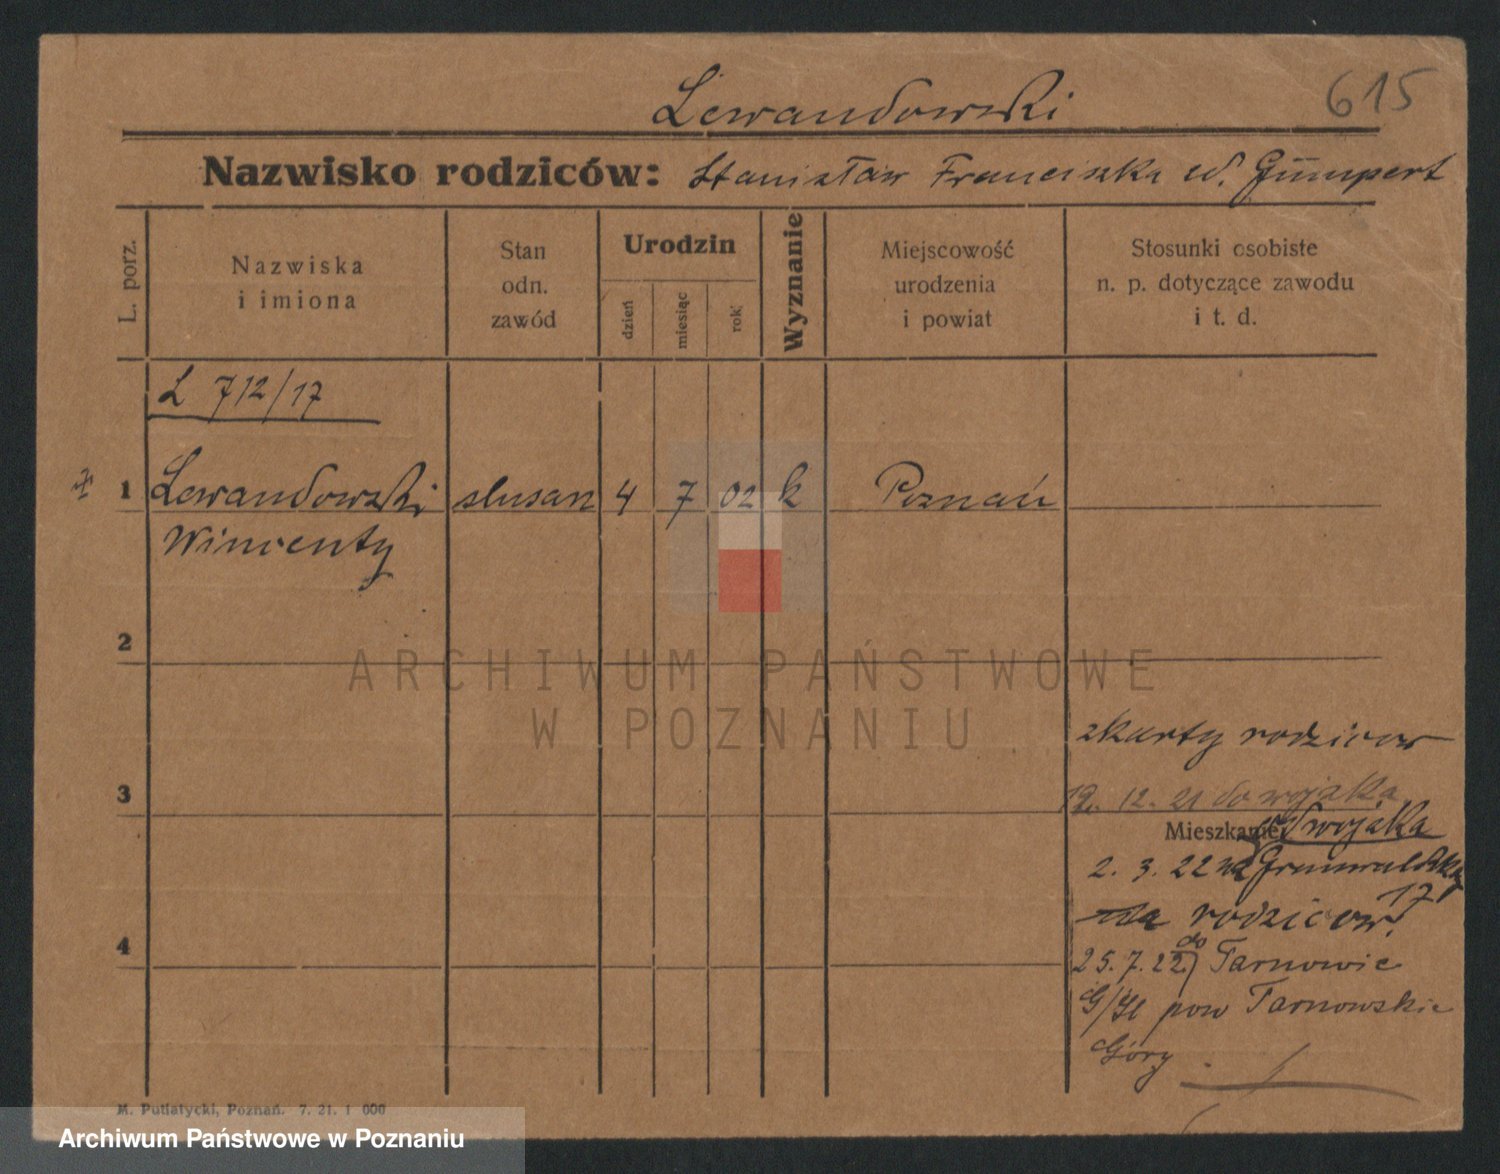 615
Lewandowski
Nazwisko rodziców: Stanisław Franciszka ud. Gumpert
L. porz.
Nazwiska
i imiona
Stan
odn.
zawód
Urodzin
dzień
miesiąc
rok
Wyznanie
Miejscowość
urodzenia
i powiat
Stosunki osobiste
n. p. dotyczące zawodu
i t. d.
L 712/17
1 Lewandowski slusarz 4 7 02 k Poznań
Wincenty
2
ARCHIWUM PAŃSTWOWE
W POZNANIU
z karty rodziców
3
12. 21 do wojska
Mieszkanie: wojska
2. 3. 22 Grunwaldzka
17
rodziców
4
do
25. 7. 22 Tarnowic
G/Sl pow Tarnowskie
Góry
M. Putiatycki, Poznań. 7. 21. 1 000
Archiwum Państwowe w Poznaniu